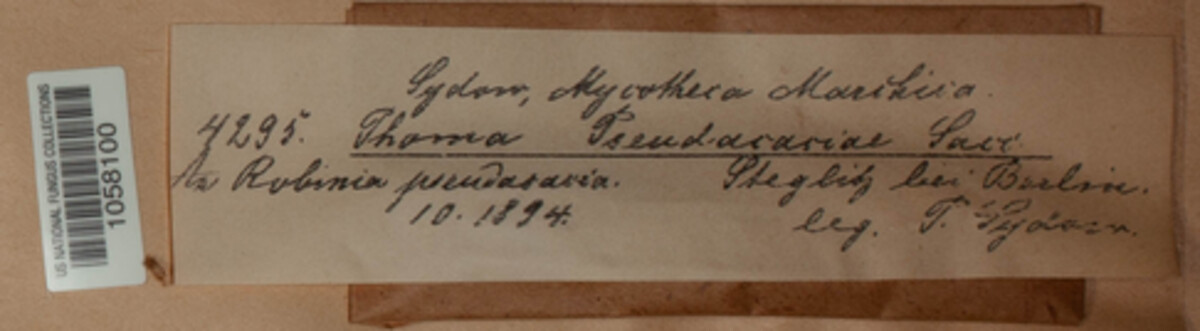 US NATIONAL FUNGUS COLLECTIONS
1058100
Sydow, Mycotheca Marchica.
4295. Phoma Pseudacaciae Sacc.
An Robinia pseudacacia. Steglitz bei Berlin.
10. 1894. leg. P. Sydow.